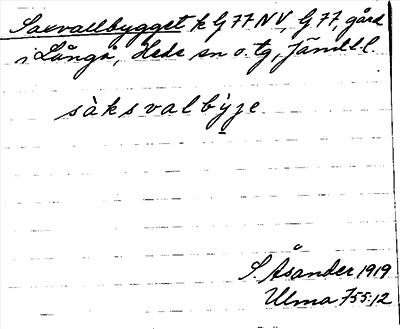 Saxvallbygget k G 77 NV, G 77, gård
i Långå, Hede sn o. tg, Jämtl. l
sàksvalbỳje
S. Åsander 1919
Ulma 755:12